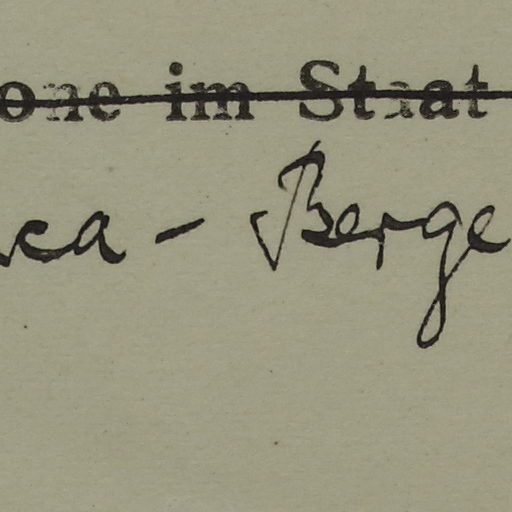 one im Staat
ca - Berge